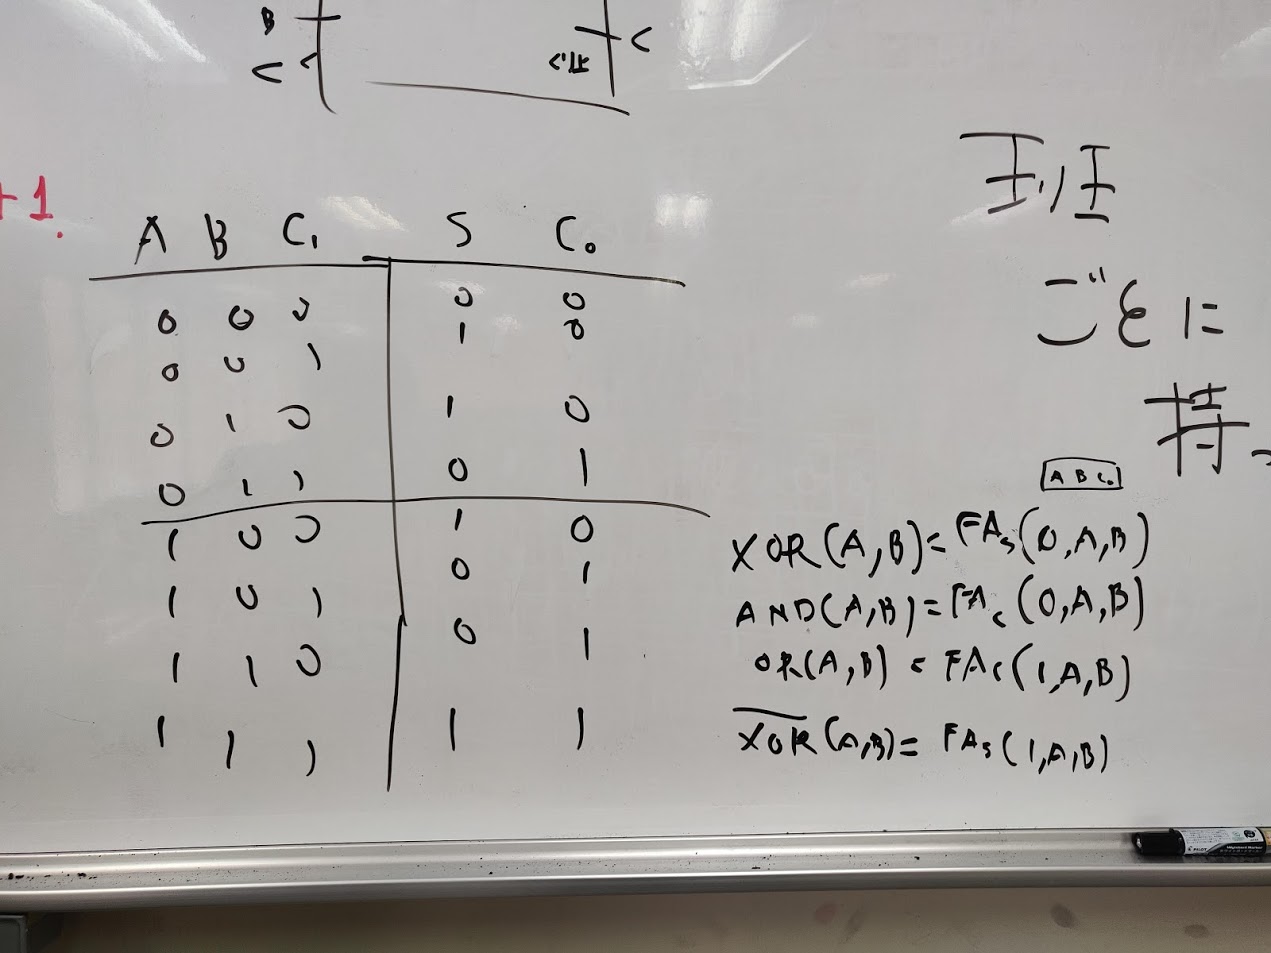 B
+1.
A B C₁ S C₀
0 0 0 0 0
0 0 1 1 0
0 1 0 1 0
0 1 1 0 1
1 0 0 1 0
1 0 1 0 1
1 1 0 0 1
1 1 1 1 1
ごとに
持っ
A B C₀
XOR(A,B) = FAₛ(0,A,B)
AND(A,B) = FA꜀(0,A,B)
OR(A,B) = FA꜀(1,A,B)
X̅O̅R̅(A,B) = FAₛ(1,A,B)
PILOT